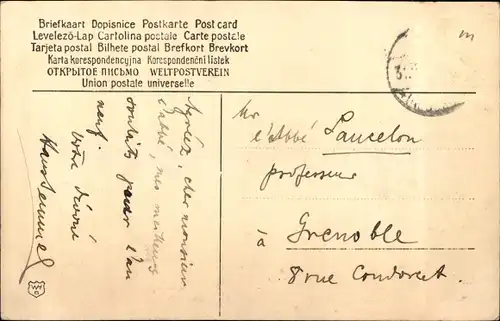 Briefkaart Dopisnice Postkarte Post card
Levelező-Lap Cartolina postale Carte postale
Tarjeta postal Bilhete postal Brefkort Brevkort
Karta korespondencyjna Korespondenční lístek
ОТКРЫТОЕ ПИСЬМО WELTPOSTVEREIN
Union postale universelle
Agréez, cher monsieur
l'abbé, mes meilleurs
souhaits pour l'an
neuf.
Votre dévoué
Mr
l'abbé Lancelon
professeur
à Grenoble
8 rue Condorcet.